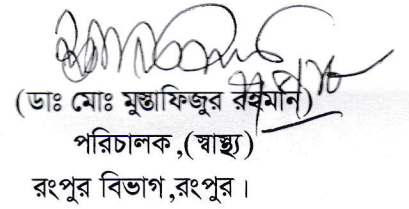 (ডাঃ মোঃ মুস্তাফিজুর রহমান)
পরিচালক,(স্বাস্থ্য)
রংপুর বিভাগ,রংপুর।